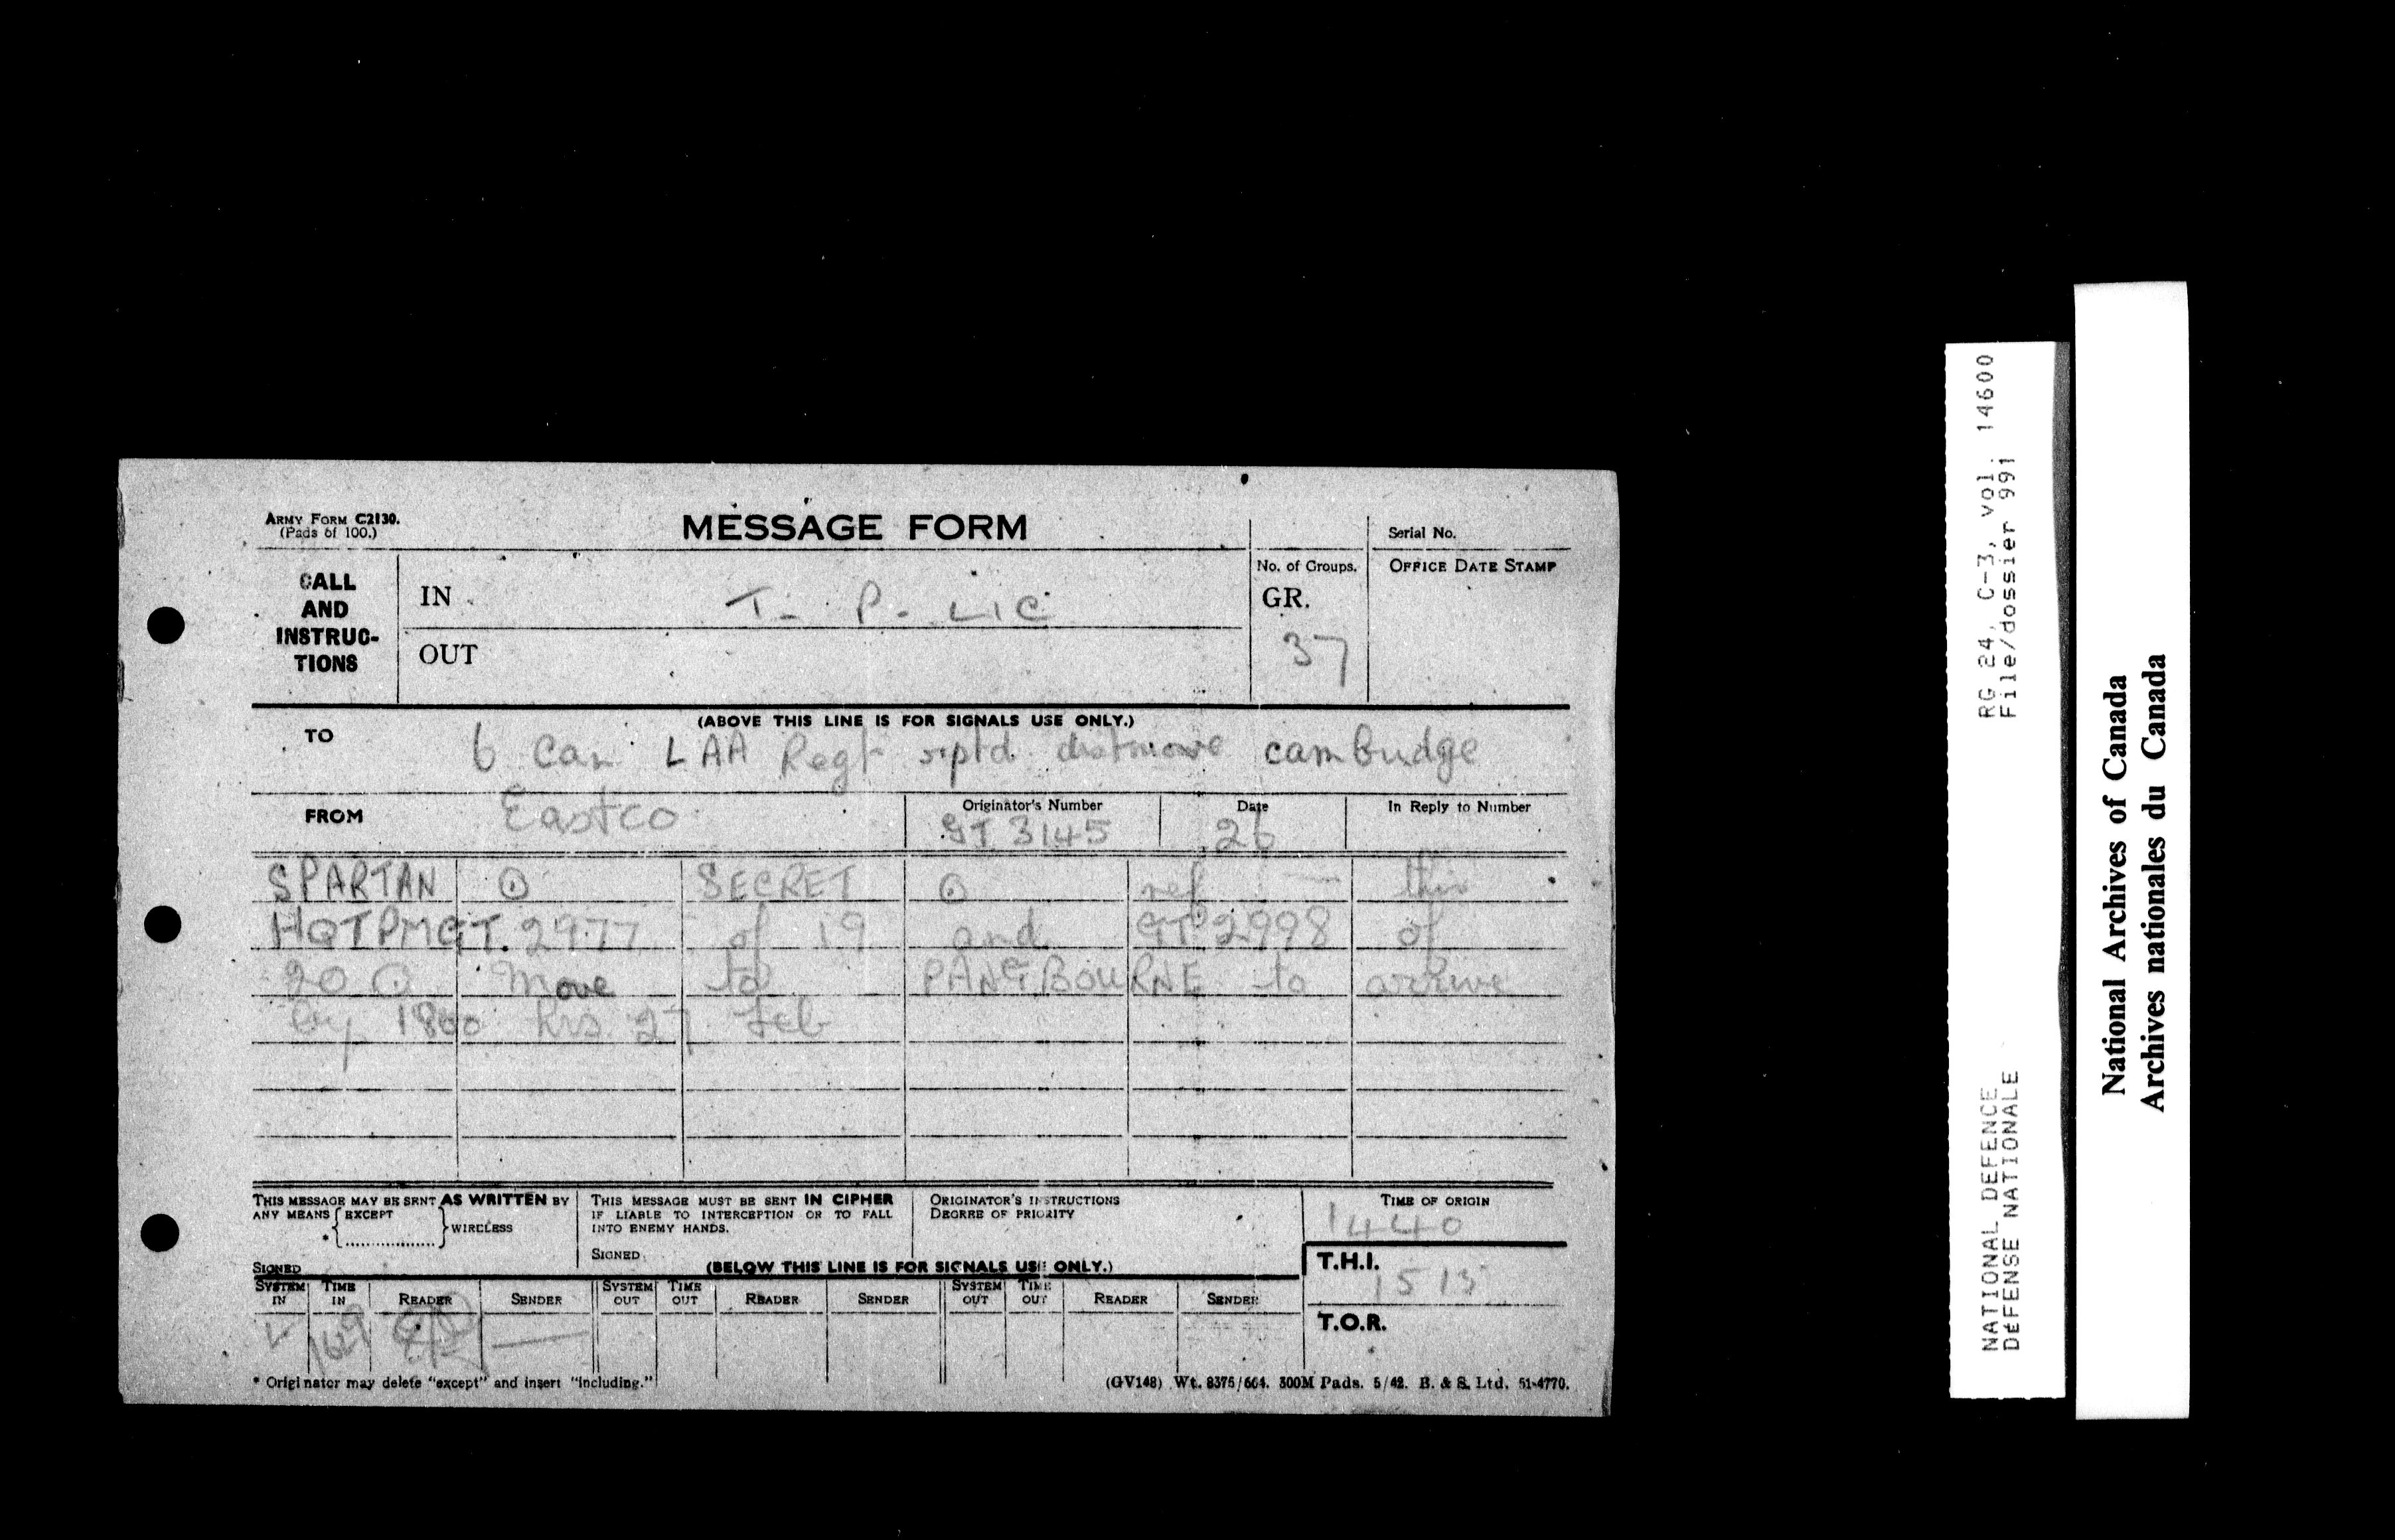 ARMY FORM C2130.
(Pads of 100.)
MESSAGE FORM
Serial No.
CALL AND INSTRUC-TIONS
IN T- P- LIC
OUT
No. of Groups.
GR.
37
OFFICE DATE STAMP
(ABOVE THIS LINE IS FOR SIGNALS USE ONLY.)
TO 6 Can LAA Regt rptd distmove cambudge
FROM Eastco
Originator's Number
GT 3145
Date
26
In Reply to Number
SPARTAN ⊙ SECRET ⊙ ref — this
HQTPMGT. 2977 of 19 and GT 2998 of
20 ⊙ Move to PANGBOURNE to arrive
by 1800 hrs. 27 feb
THIS MESSAGE MAY BE SENT AS WRITTEN BY
ANY MEANS { EXCEPT
* { .................. } WIRELESS
SIGNED
THIS MESSAGE MUST BE SENT IN CIPHER
IF LIABLE TO INTERCEPTION OR TO FALL
INTO ENEMY HANDS.
SIGNED
ORIGINATOR'S INSTRUCTIONS
DEGREE OF PRIORITY
TIME OF ORIGIN
1440
(BELOW THIS LINE IS FOR SIGNALS USE ONLY.)
T.H.I.
1513
T.O.R.
SYSTEM IN TIME IN READER SENDER SYSTEM OUT TIME OUT READER SENDER SYSTEM OUT TIME OUT READER SENDER
1629
* Originator may delete "except" and insert "including."
(GV148) Wt. 8375/664. 300M Pads. 5/42. B. & S. Ltd. 51-4770.
RG 24, C-3, vol. 14600
File/dossier 991
NATIONAL DEFENCE
DÉFENSE NATIONALE
National Archives of Canada
Archives nationales du Canada